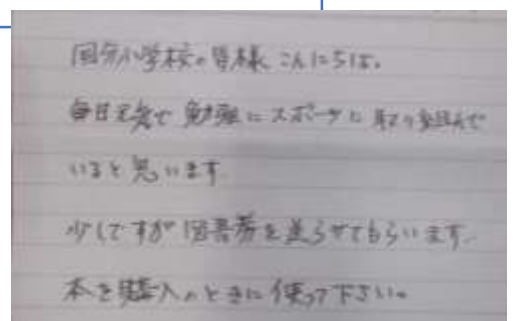 国分小学校の皆様こんにちは。
毎日元気で勉強にスポーツに取り組んで
いると思います
少しですが図書券を送らせてもらいます。
本を購入のときに使って下さい。